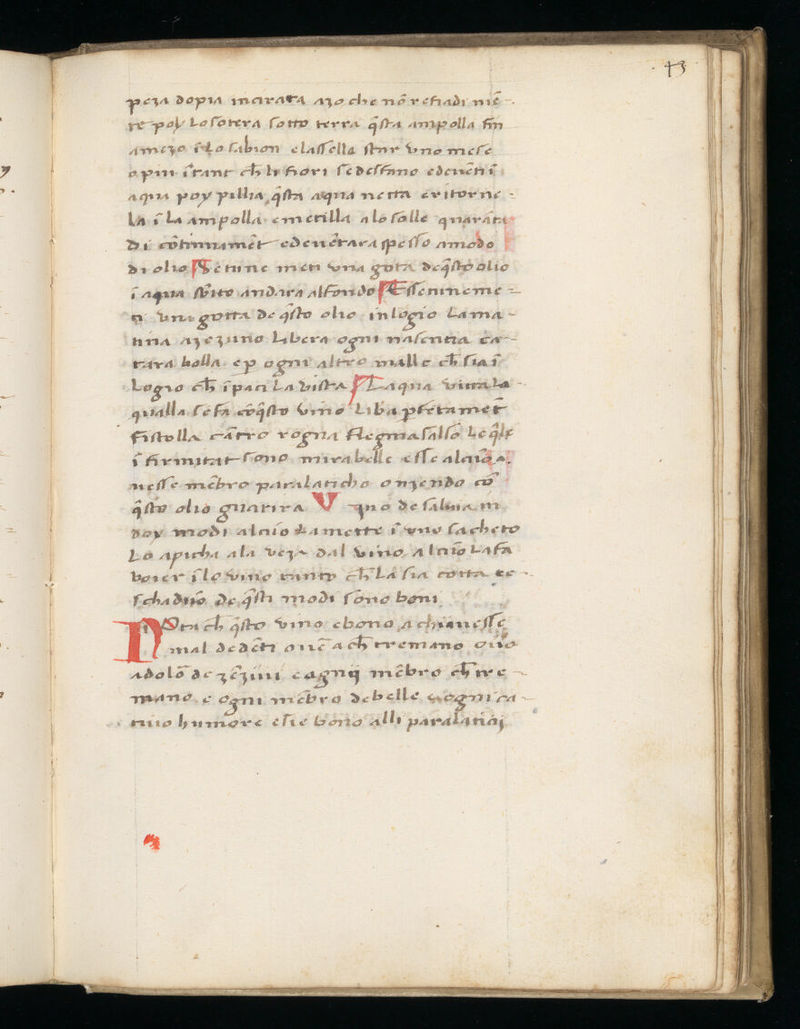 43
peza dopia incirata azo che nō refiadi niē
te poy lo sotera sotto terra q̄sta ampolla fin
amezo ī lo sabion e lassella star vno mese
o piu ītant ch̄ li fiori se desfano e deuēti ī
aqua poy pillia q̄sta aqua netta e ritorne
la ī la ampolla e metilla a lo solle quarāta
Di cōtinuamēt e deuētara spesso a modo
di olio Se tu ne meti vna gota de q̄sto olio
ī aqua sbito andara al fondo E se ni ne me
ti vna gotta de q̄sto olio in logio la ma
tina a zezuno libera ogni nasentia ca
tara bolla ep ogni altro malle ch̄ sia ī
logio ch̄ īpazi la vista Laqua vitta la
qualla se fa cō q̄sto vino liba pfetamēt
fistolla cācro rogna flegma salso le q̄le
ī firmitat sono mirabelle esse alcūo a
uesse mēbro paralaticho onzendo cō
q̄sto olio guarira Vyno de saluia in
doy modi alcūo la mette ī vno sacheto
Lo apicha ala veza dal vino alcūo la fa
boier ī lo vino tanto ch̄ la sia cotta ec
schaduō de q̄sti modi sono boni
Nota ch̄ q̄sto vino e bono a chi auesse
mal de dēti ouē a ch̄ tremano ouō
a dolō de zēziui e a gnij mēbro ch̄ tre
mano e ogni mēbro debelle e ogni ca
tiuo humore e sie bono alli paralatici